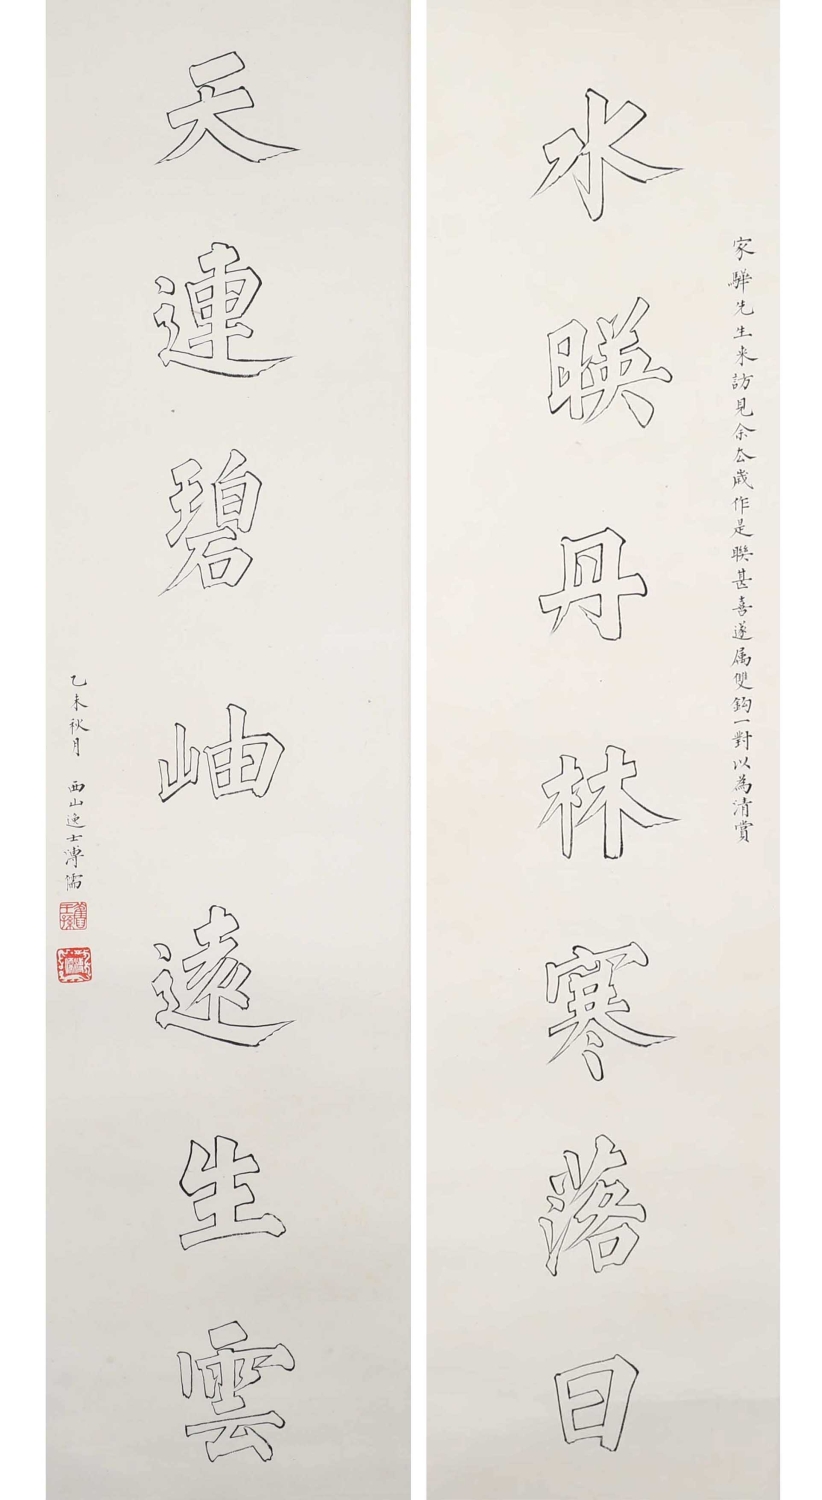 家驊先生来訪見余厺歲作是聯甚喜遂属雙鈎一對以為清賞
水暎丹林寒落日
天連碧岫遠生雲
乙未秋月 西山逸士溥儒
舊王孫